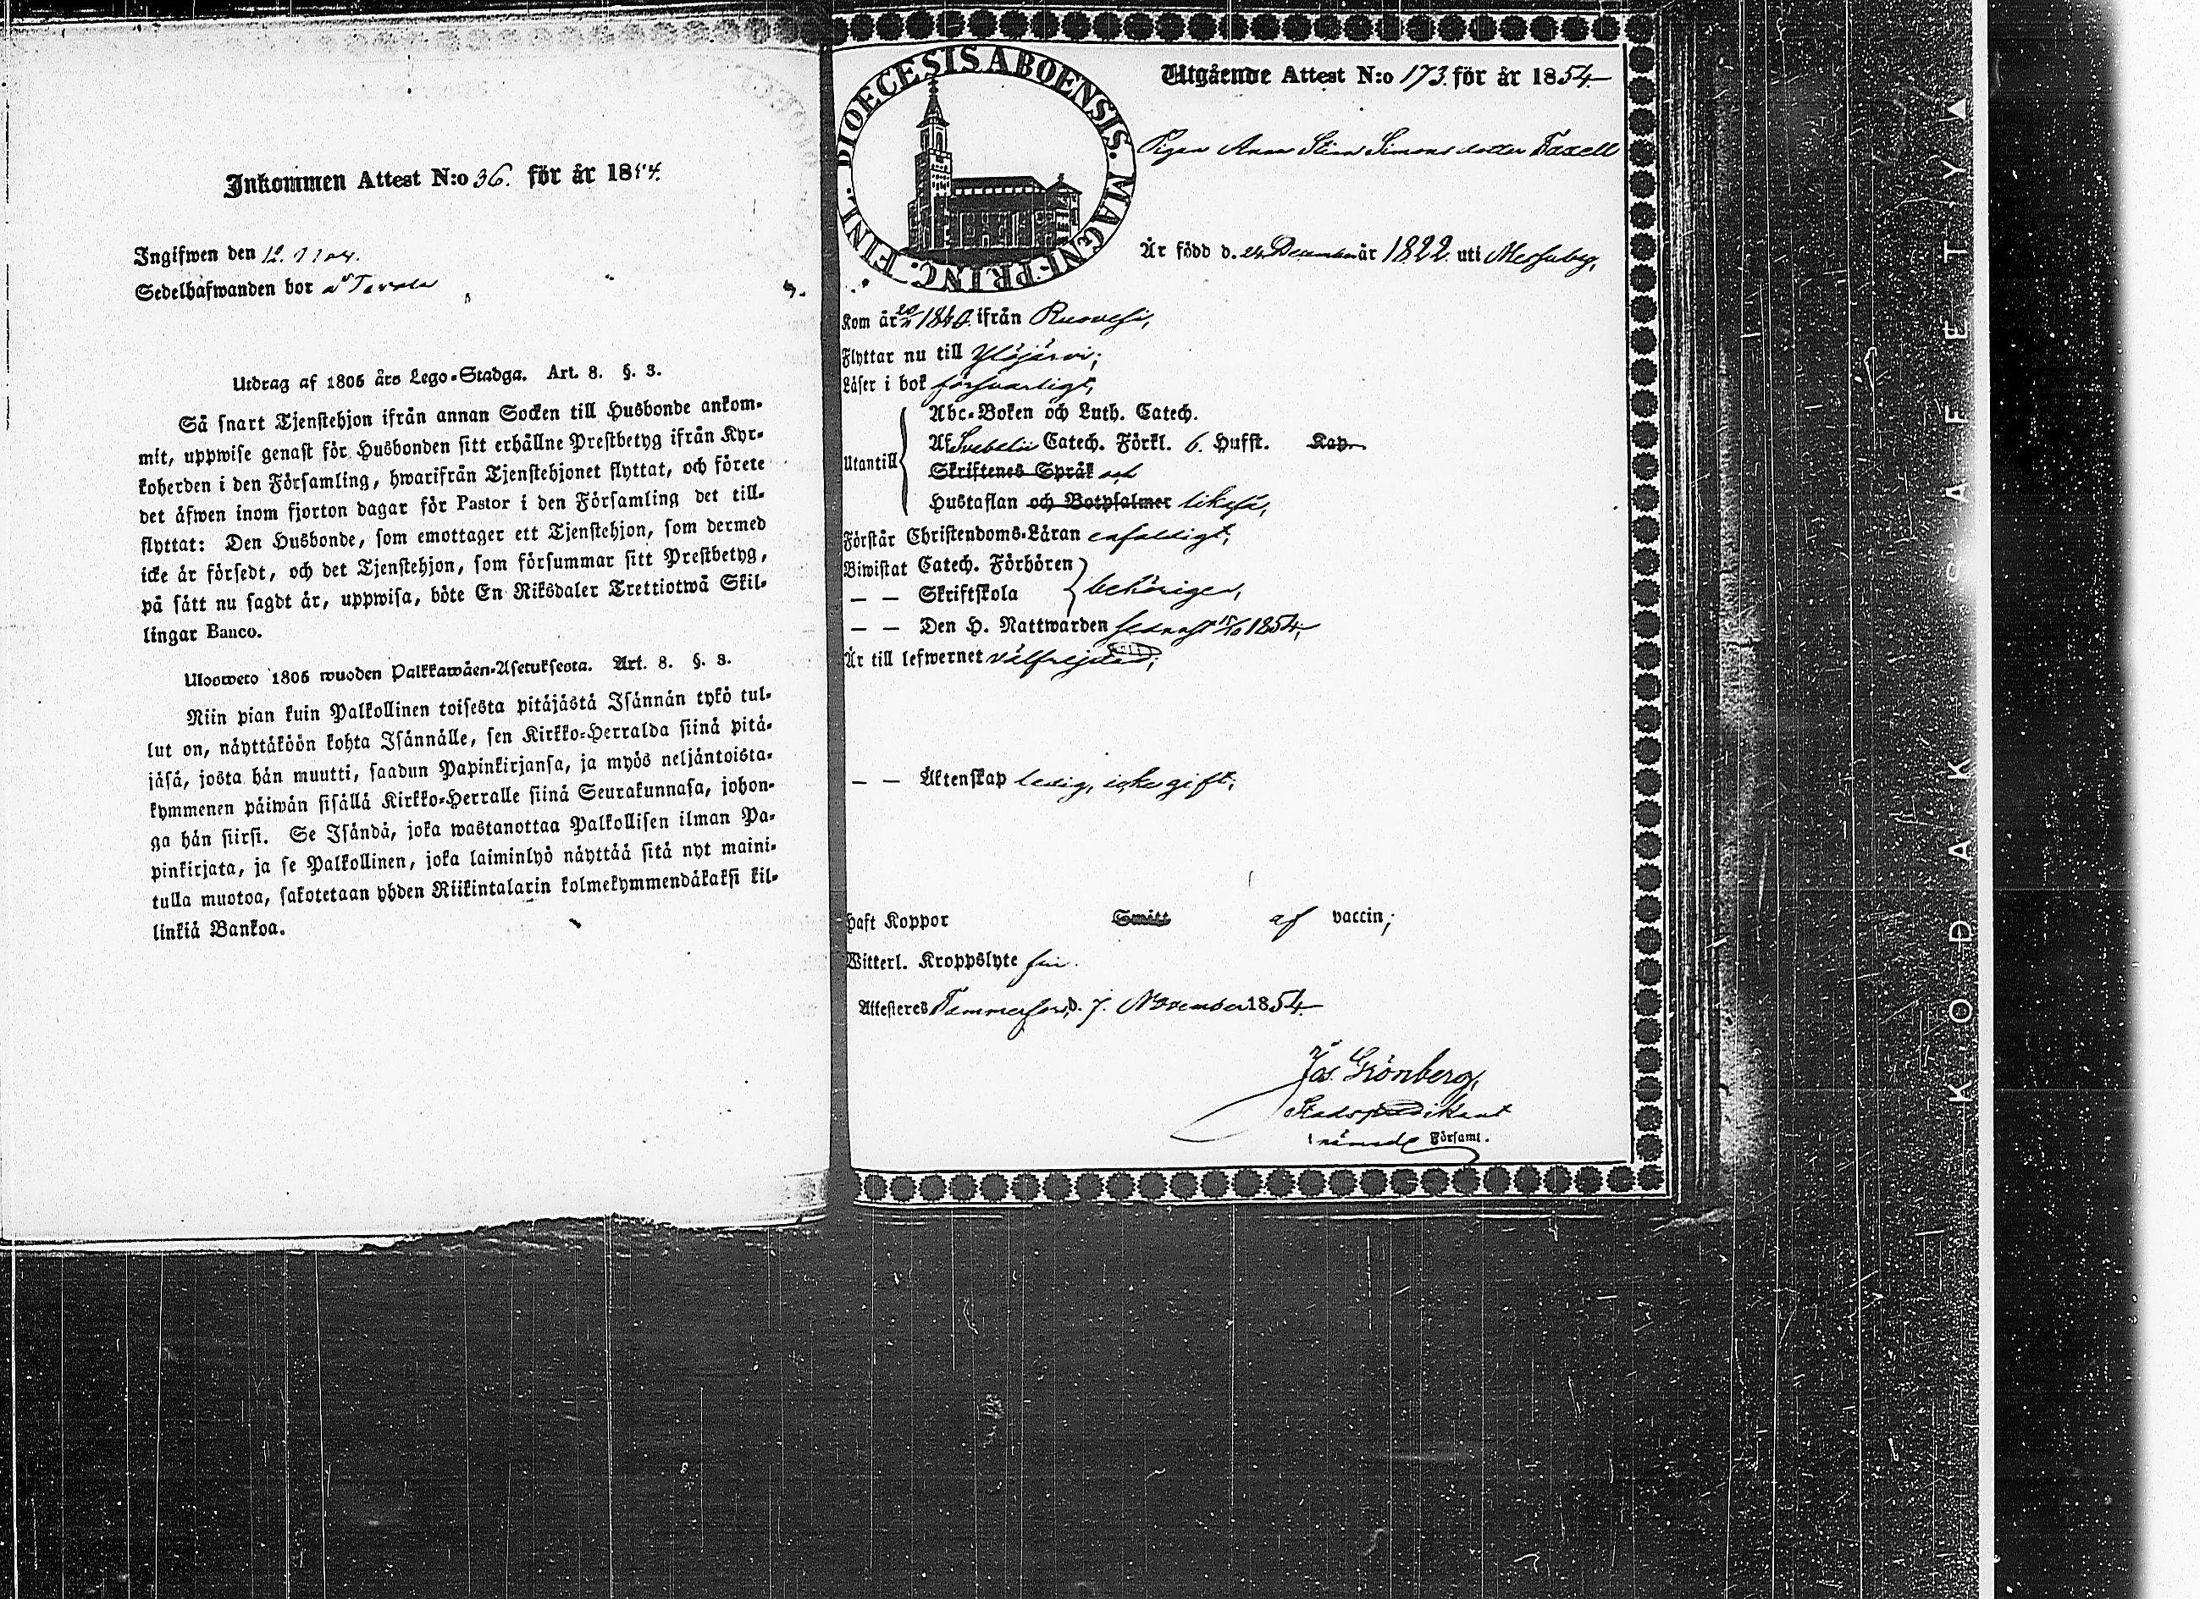 Inkommen Attest N:o 36. för år 1854.
Ingifwen den 12. Nov.
Sedelhafwanden bor å Tavela
Utdrag af 1805 års Lego-Stadga. Art. 8. §. 3.
Så snart Tjenstehjon ifrån annan Socken till Husbonde ankom-
mit, uppwise genast för Husbonden sitt erhållne Prestbetyg ifrån Kyr-
koherden i den Församling, hwarifrån Tjenstehjonet flyttat, och förete
det äfwen inom fjorton dagar för Pastor i den Församling det till-
flyttat: Den Husbonde, som emottager ett Tjenstehjon, som dermed
icke är försedt, och det Tjenstehjon, som försummar sitt Prestbetyg,
på sätt nu sagdt är, uppwisa, böte En Riksdaler Trettiotwå Skil-
lingar Banco.
Ulosweto 1805 wuoden Palkkawäen-Asetuksesta. Art. 8. §. 3.
Niin pian kuin Palkollinen toisesta pitäjästä Isännän tykö tul-
lut on, näyttäköön kohta Isännälle, sen Kirkko-Herralda siinä pitä-
jäsä, josta hän muutti, saadun Papinkirjansa, ja myös neljäntoista-
kymmenen päiwän sisällä Kirkko-Herralle siinä Seurakunnasa, johon-
ga hän siirsi. Se Isändä, joka wastanottaa Palkollisen ilman Pa-
pinkirjata, ja se Palkollinen, joka laiminlyö näyttää sitä nyt maini-
tulla muotoa, sakotetaan yhden Riikintalarin kolmekymmendäkaksi kil-
linkiä Bankoa.
DIOECESIS ABOENSIS. MAGNI PRINC. FINL.
Utgående Attest N:o 173. för år 1854
Pigan Anna Stina Simonsdotter Taxell
Är född d. 24 December år 1822 uti Messuby,
Kom år 1840. ifrån Ruovesi,
Flyttar nu till Ylöjärvi;
Läser i bok försvarligt,
Utantill
Abc-Boken och Luth. Catech.
Af Svebelii Catech. Förkl. 6. Hufst. Kap.
Skriftenes Språk och
Hustaflan och Botpsalmer likaså,
Förstår Christendoms-Läran enfaldigt,
Biwistat Catech. Förhören
— — Skriftskola behörigen,
— — Den H. Nattwarden senast 15/10 1854;
Är till lefwernet välfrejdad;
— — Äktenskap ledig, icke gift;
Haft Koppor Smitt af vaccin;
Witterl. Kroppslyte fri.
Attesteres Tammerfors, d. 7. November 1854
Jos. Grönberg,
Stadspredikant
i nämnde Församl.
KODAK SAFETY A